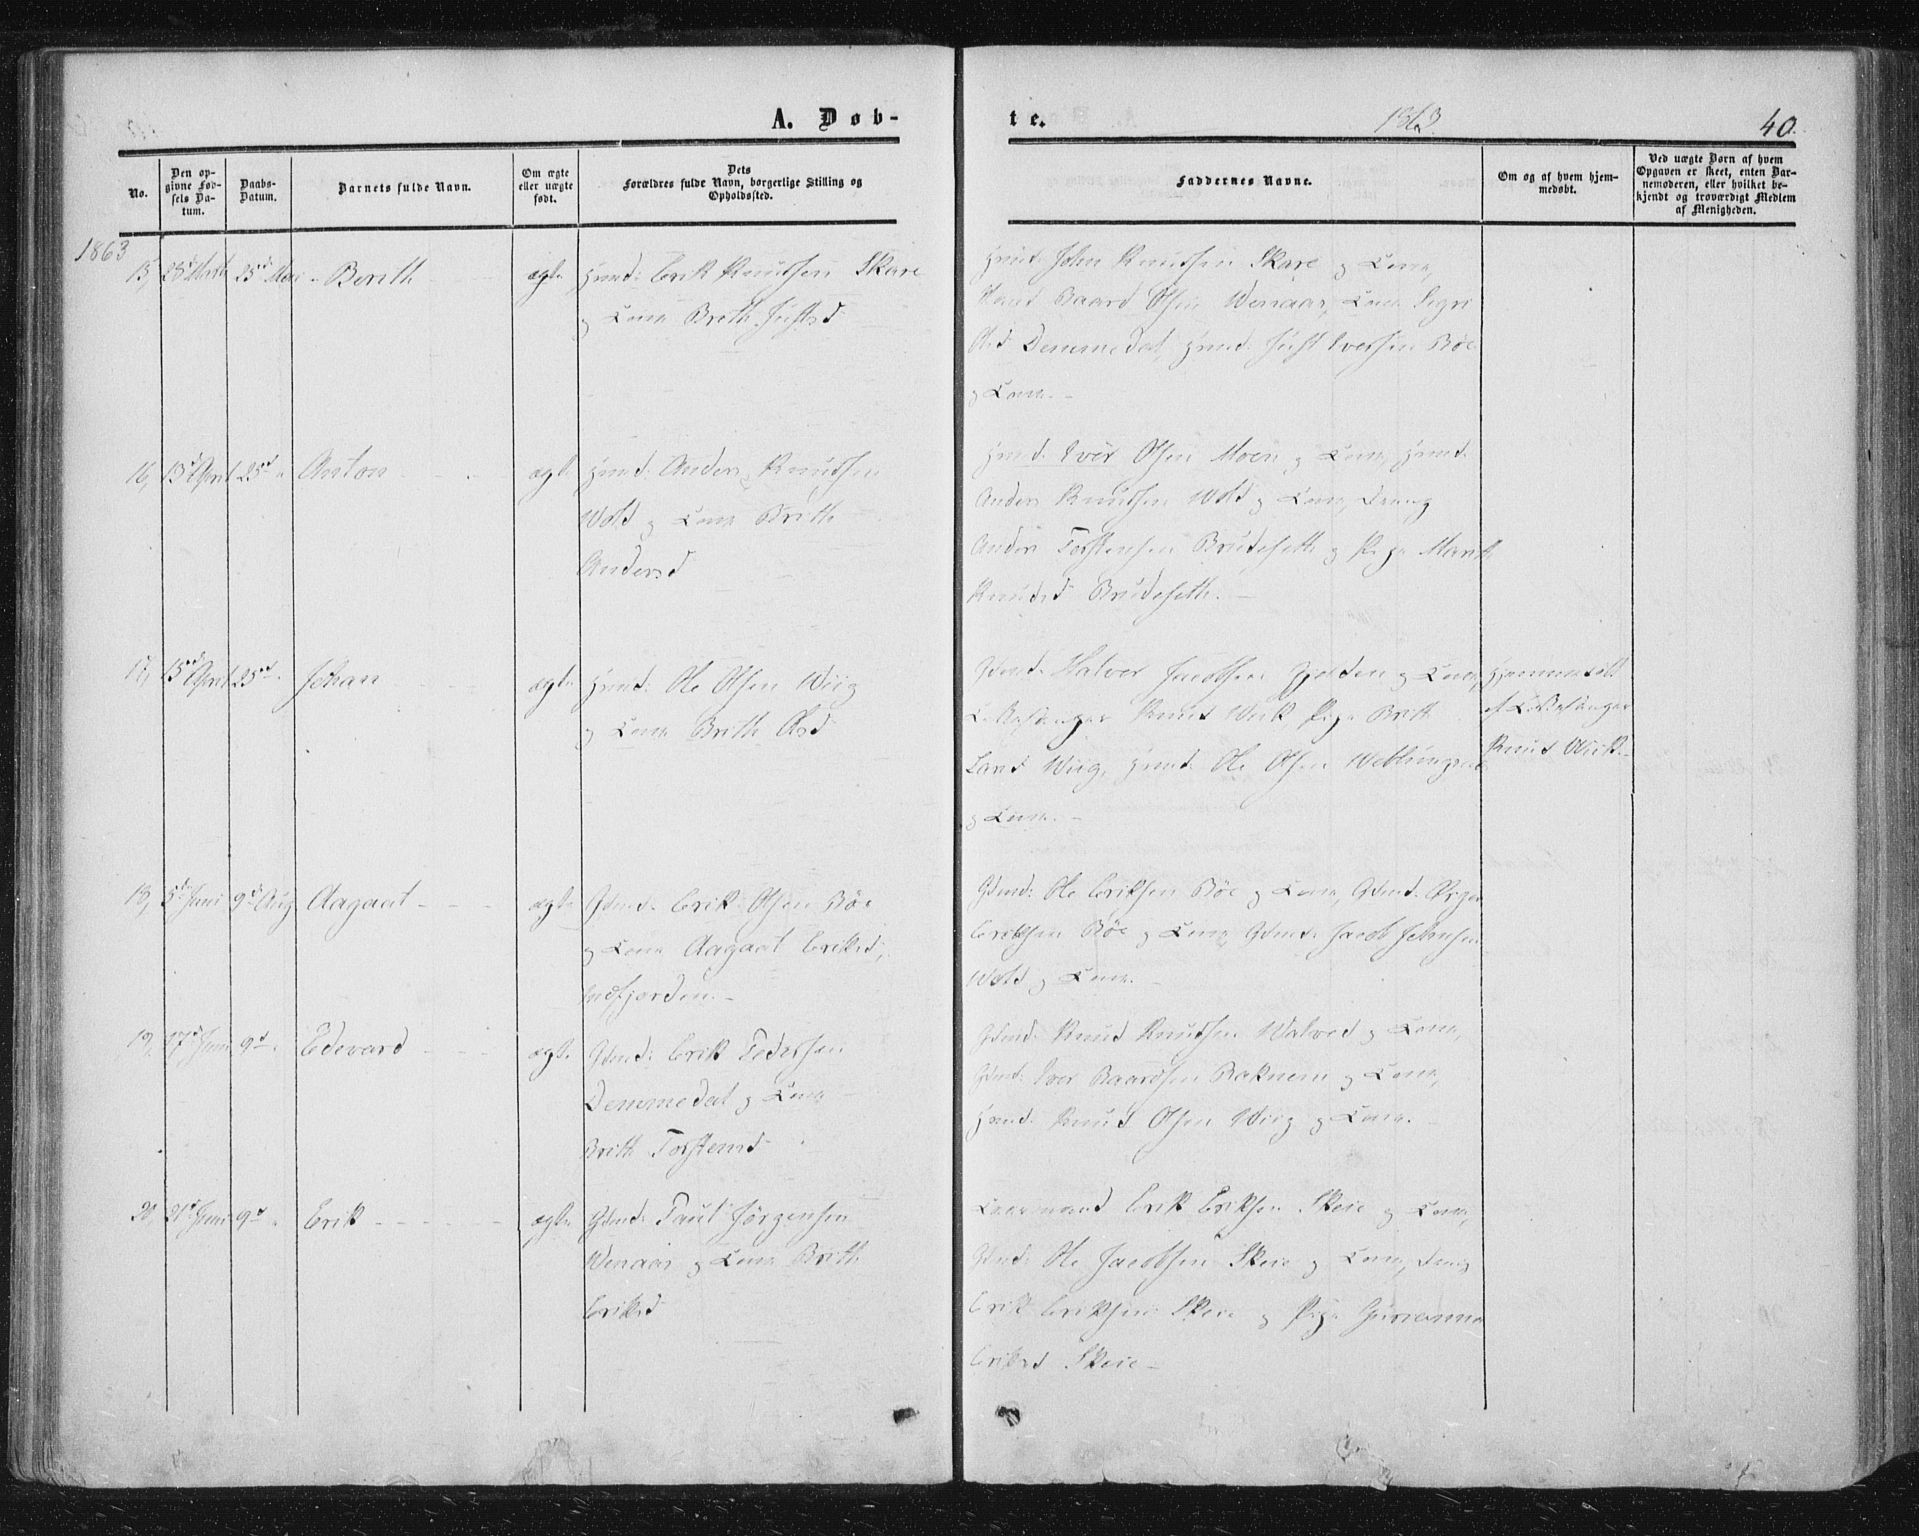 A. Døb-
te.
1863
40.
No.
Den opgivne Fødsels Datum.
Daabs-Datum.
Barnets fulde Navn.
Om ægte eller uægte født.
Dets Forældres fulde Navn, borgerlige Stilling og Opholdssted.
Faddernes Navne.
Om og af hvem hjemmedøbt.
Ved uægte Børn af hvem Opgaven er skeet, enten Barnemoderen, eller hvilket bekjendt og troværdigt Medlem af Menigheden.
1863
15, 25d Marts 25d Mai Berith ægte Hmd: Erik Knudsen Skare
og Kone Brith Justsd
Hmd: John Knudsen Skare og Kone,
Baard Olsen Wenaas, Kone Sigri
Olsd Demmedal, Hmd: Just Iversen Böe
og Kone.
16, 13d April 25d Anton ægte Hmd: Anders Knudsen
Wold og Kone Brith
Andersd
Hmd: Iver Olsen Moen og Kone, Hmd:
Anders Knudsen Wold og Kone, Dreng
Anders Torstensen Brudeseth og Pige Marit
Knudsd Brudeseth.
17, 15d April 25d Johan ægte Hmd: Ole Olsen Wiig
og Kone Brith Olsd
Gdmd: Halvor Jacobsen og Kone,
Kirkesanger Knud Wiik Pige Brith
Larsd Wiig, Hmd: Ole Olsen Weblungsnes
og Kone.
Hjemmedöbt
af Kirkesanger
Knud Wiik
18, 5d Juni 9d Aug Aagaat ægte Gdmd: Erik Olsen Böe
og Kone Aagaat Eriksd,
Indfjorden.
Gdmd: Ole Eriksen Böe og Kone, Gdmd:
Eriksen Böe og Kone, Gdmd: Jacob Johnsen
Wold og Kone.
19, 17d Juni 9d Edevard ægte Gdmd: Erik Pedersen
Demmedal og Kone
Brith Torstensd
Gdmd: Knud Knudsen og Kone,
Gdmd: Iver Baardsen Boknem og Kone,
Hmd: Knud Olsen Wiig og Kone.
20, 21d Juni 9d Erik ægte Gdmd: Paul Jörgensen
Wenaas og Kone Brith
Eriksd
Kaarmand Erik Eriksen Skeie og Kone,
Gdmd: Ole Jacobsen Skeie og Kone, Dreng
Erik Eriksen Skeie og Pige Gurianna
Eriksd Skeie